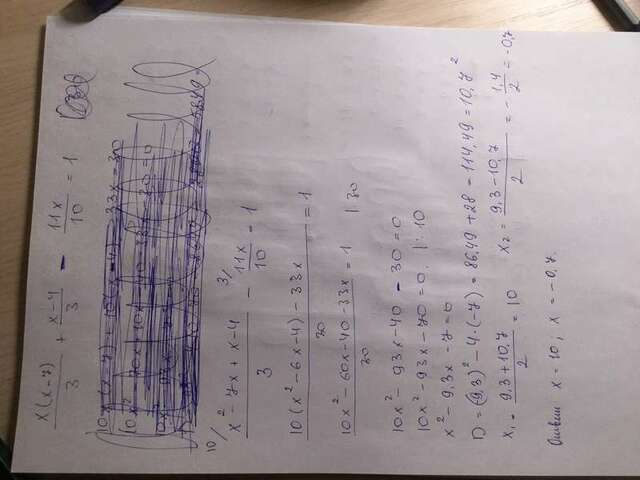 x(x-7)/3 + x-4/3 - 11x/10 = 1
10/ x² - 7x + x - 4 / 3 - 3/ 11x/10 = 1
10(x² - 6x - 4) - 33x / 30 = 1
10x² - 60x - 40 - 33x / 30 = 1 | 30
10x² - 93x - 40 - 30 = 0
10x² - 93x - 70 = 0 | : 10
x² - 9,3x - 7 = 0
D = (9,3)² - 4·(-7) = 86,49 + 28 = 114,49 = 10,7²
x₁ = 9,3 + 10,7 / 2 = 10 x₂ = 9,3 - 10,7 / 2 = - 1,4/2 = -0,7
Ответ x = 10, x = -0,7.